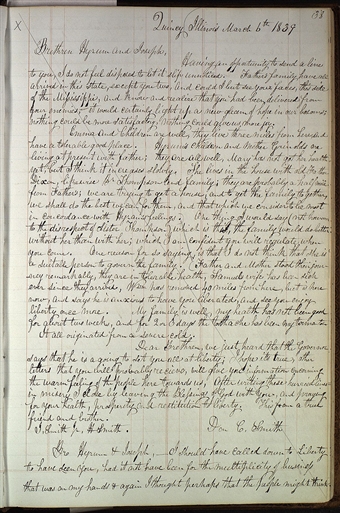 38
X
Quincy, Illinois March 6th 1839
Brethren Hyrum and Joseph,
Having an opportunity to send a line
to you, I do not feel disposed to let it slip unnoticed. Fathers family have all
arrived in this state, except you two, And could I but see your faces, this side
of the Mississippi, and know and realize that you had been delivered from
your enemies, it would certainly light up a new gleam of hope in our bosoms;
nothing could be more satisfactory, Nothing could give us more joy.
Emma and Children are well, they live three miles from here, and
have a tolerable good place. Hyrum's children and Mother Grinolds are
living at present with father; they are all well, Mary has not got her health
yet, but I think it increases slowly. She lives in the house with old Father
Dixon, likewise Br Thompson and family; they are probably a half mile
from Fathers; we are trying to get a house, and to get the family together,
we shall do the best we can for them, and that which we consider to be most
in concordance with Hyrum's feelings. One thing I would say (not however
to the disrespect of Sister Thompson) which is that, the family would do better
without her than with her; which I am confident you will regulate when
you come. One reason for so saying, is that I do not think that she is
a suitable person to govern the family. Father and Mother stood their journ-
ey remarkably, they are in tolerable health, Samuels wife has been sick
ever since they arrived, Wm has removed 40 miles from here, but is here
now, and says he is anxious to have you liberated, and see you enjoy
liberty once more. My family is well, my health has not been good
for about two weeks, and for 2 or 3 days the toothache has been my tormentor.
It all originated from a severe cold.
Dear Brethren we just heard that the Governor
says that he is a going to set you all at liberty; I hope its true, other
letters that you will probably receive, will give you information concerning
the warm feeling of the people here towards us, After writing these hurried lines
in misery I close by leaving the blessings of God with you, and praying
for your health, prosperity and restitution to liberty. This from a true
friend and brother.
J. Smith Jr, H. Smith. Don C. Smith.
Bro Hyrum & Joseph, I should have called down to Liberty
to have seen you, had it not have been for the multiplicity of business
that was on my hands & again I thought perhaps that the people might think